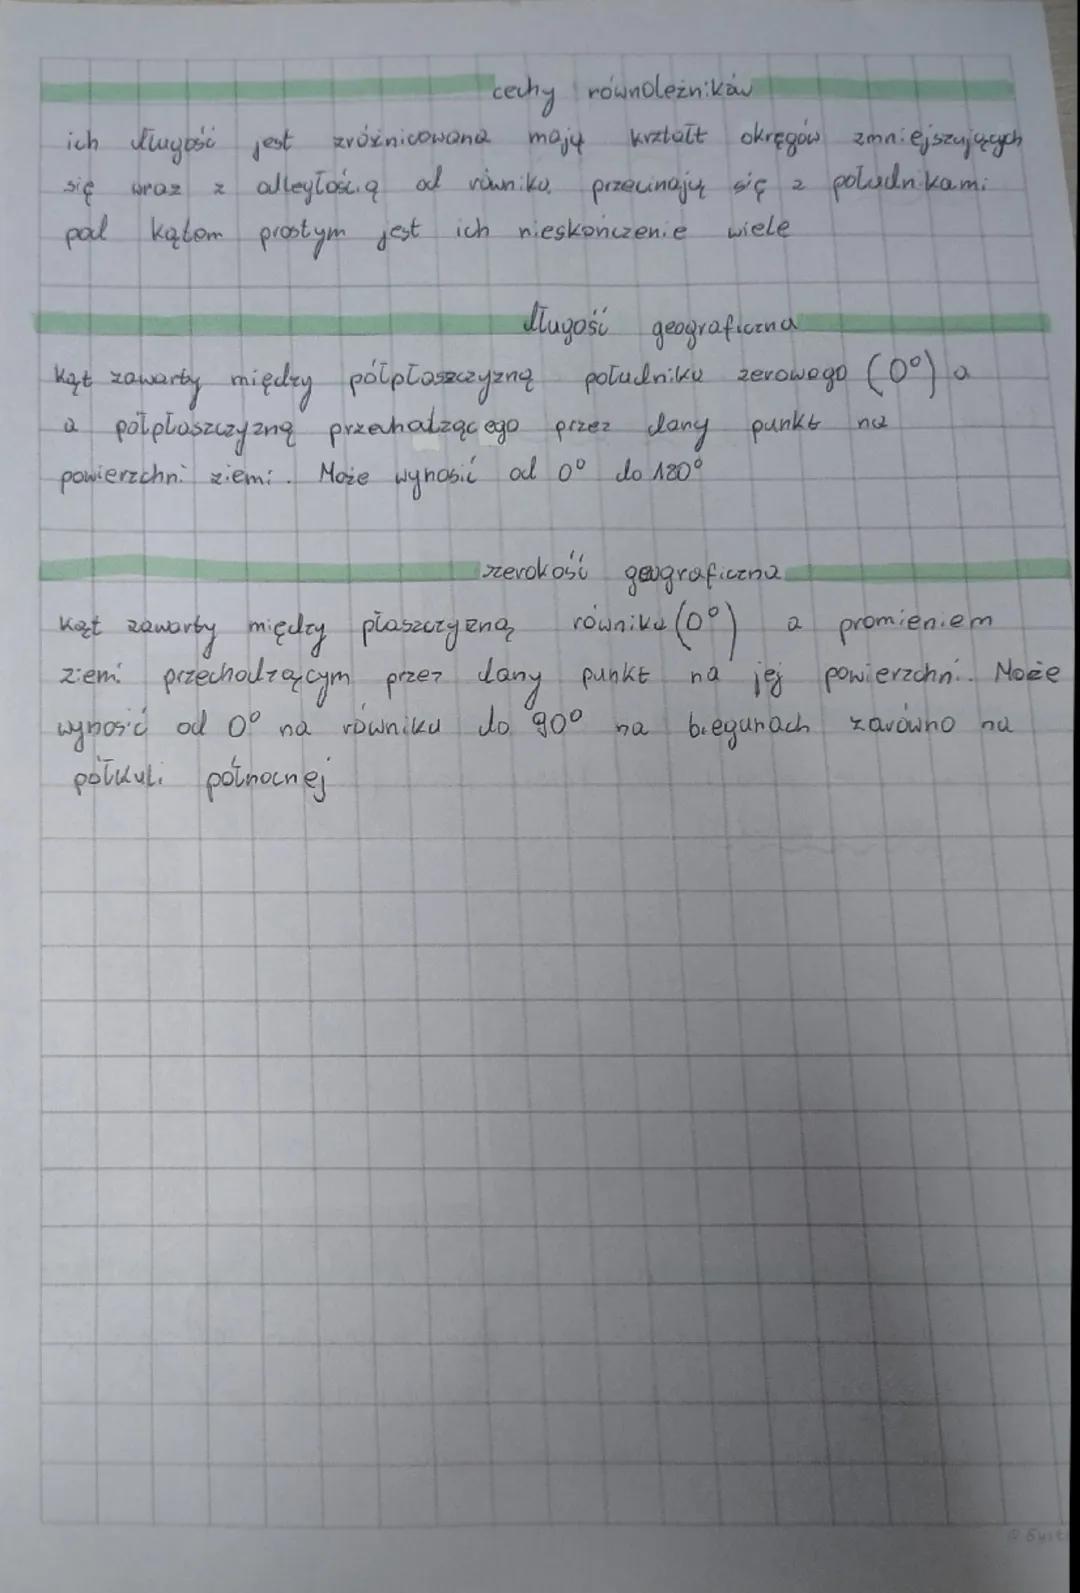 cechy równoleżników
ich długość jest zróżnicowana mają krztałt okręgów zmniejszujących
się wraz z odległością od równika przecinają się z południkami
pod kątem prostym jest ich nieskończenie wiele
długość geograficzna
kąt zawarty między półpłaszczyzną południku zerowego (0°) a
a półpłaszczyzną przechodzącego przez dany punkt na
powierzchni ziemi. Może wynosić od 0° do 180°
szerokość geograficzna
kąt zawarty między płaszczyzną równika (0°) a promieniem
ziemi przechodzącym przez dany punkt na jej powierzchni. Może
wynosić od 0° na równiku do 90° na biegunach zarówno na
półkuli północnej